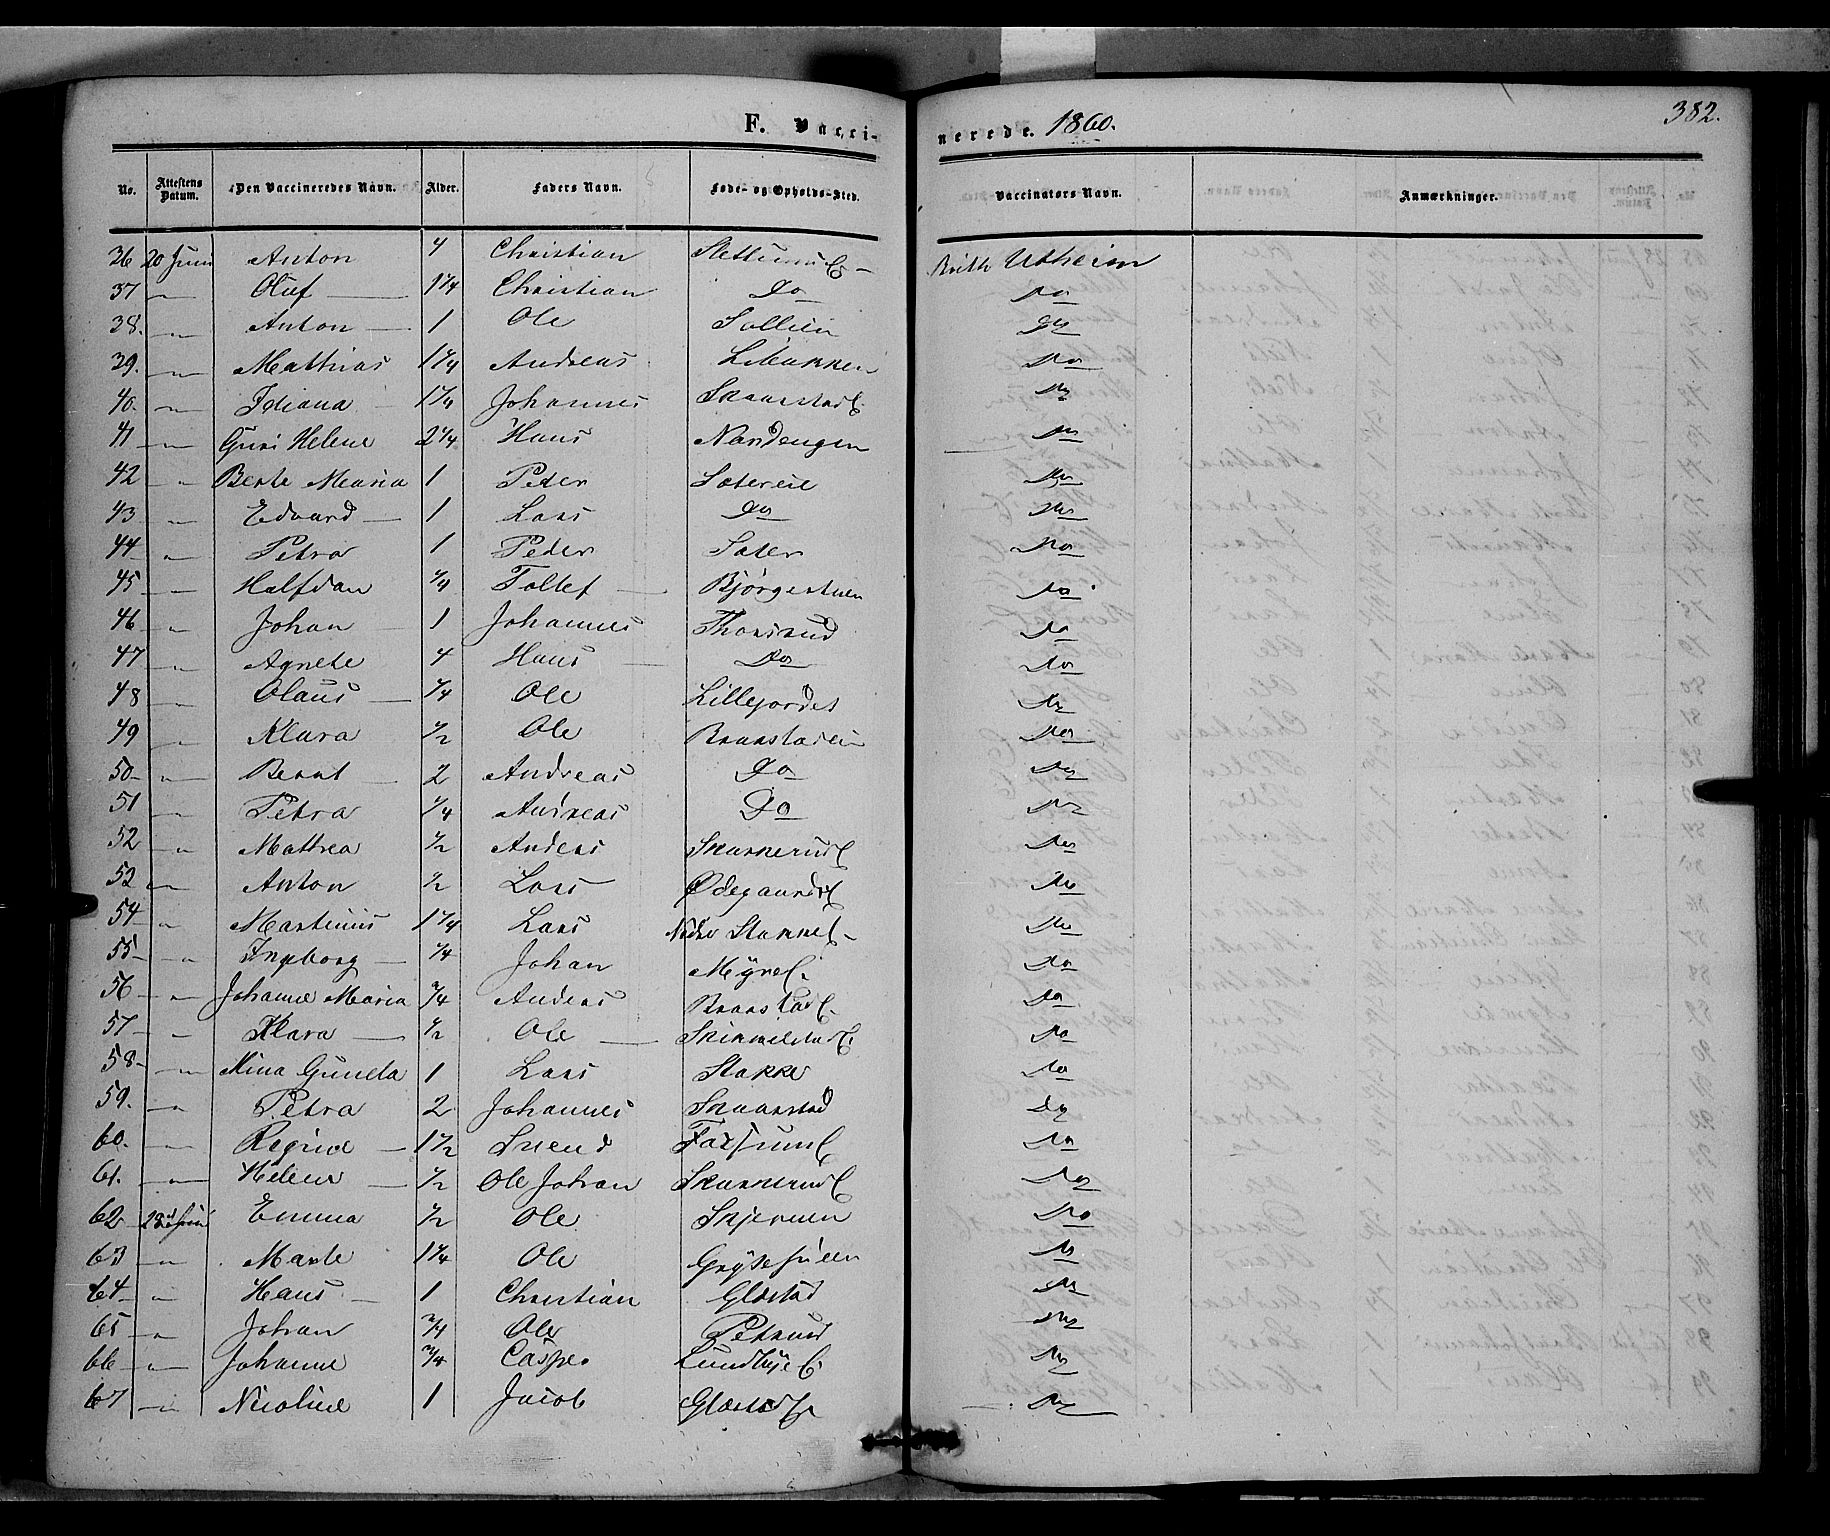 F. Vacci-
nerede. 1860.
382.
No. Attestens Datum. Den Vaccineredes Navn. Alder. Faders Navn. Føde- og Opholds-Sted. Vaccinators Navn. Anmærkninger.
36 20 Juni Anton 4 Christian Slettum E - Utheim
37 — Oluf — 1 1/4 Christian Do Do
38. — Anton — 1 Ole Sollien Do
39. — Mathias 1 1/4 Andreas Libakken Do
40. — 1 1/4 Johannes Skaarstad E Do
41 — Guri Helene 2 1/4 Hans Nordengen Do
42 — Berte Maria 1 Peder Sætereie Do
43 — Edvard — 1 Lars Do Do
44 — Petra 1 Peder Sæter Do
45 — Halfdan 1/4 Tollef — Bjørgestuen Do
46 — Johan — 1 Johannes Thorsrud Do
47 — Agnete 4 Hans — Do Do
48 — Olaus — 1/4 Ole Lillejordet Do
49 — Klara 1/2 Ole Braastadeie Do
50 — Bernt — 2 Andreas Do Do
51 — Petra 1/4 Andreas Do Do
52 — Mathea 1/2 Anders Skakkerud E Do
53 — Anton 1/2 Lars Ødegaards E Do
54 — Martinius 1 1/4 Lars Nedre Stakke E - Do
55 — Ingeborg — 1/4 Johan Myre E. Do
56 — Johanne Maria 3/4 Anders Braastad E. Do
57 — Klara — 1/2 Ole — Skimmelstad E. Do
58 — Mina Gunda 1 Lars Stakke Do
59. — Petra 2 Johannes Skaarstad Do
60. — Regine — 1 1/2 Svend Faxsum E Do
61. — Helene — 1/2 Ole Johan Skakkerud E Do
62 28 Juni Emma 1/2 Ole Skjerven Do
63 — Marte 1 1/4 Ole Do
64 — Hans — 1 Christian Glæstad Do
65 — Johan 3/4 Ole Petsrud Do
66 — Johanne 3/4 Casper Lundbye E. Do
67 — Nicoline 1 Jacob Glæstad E Do